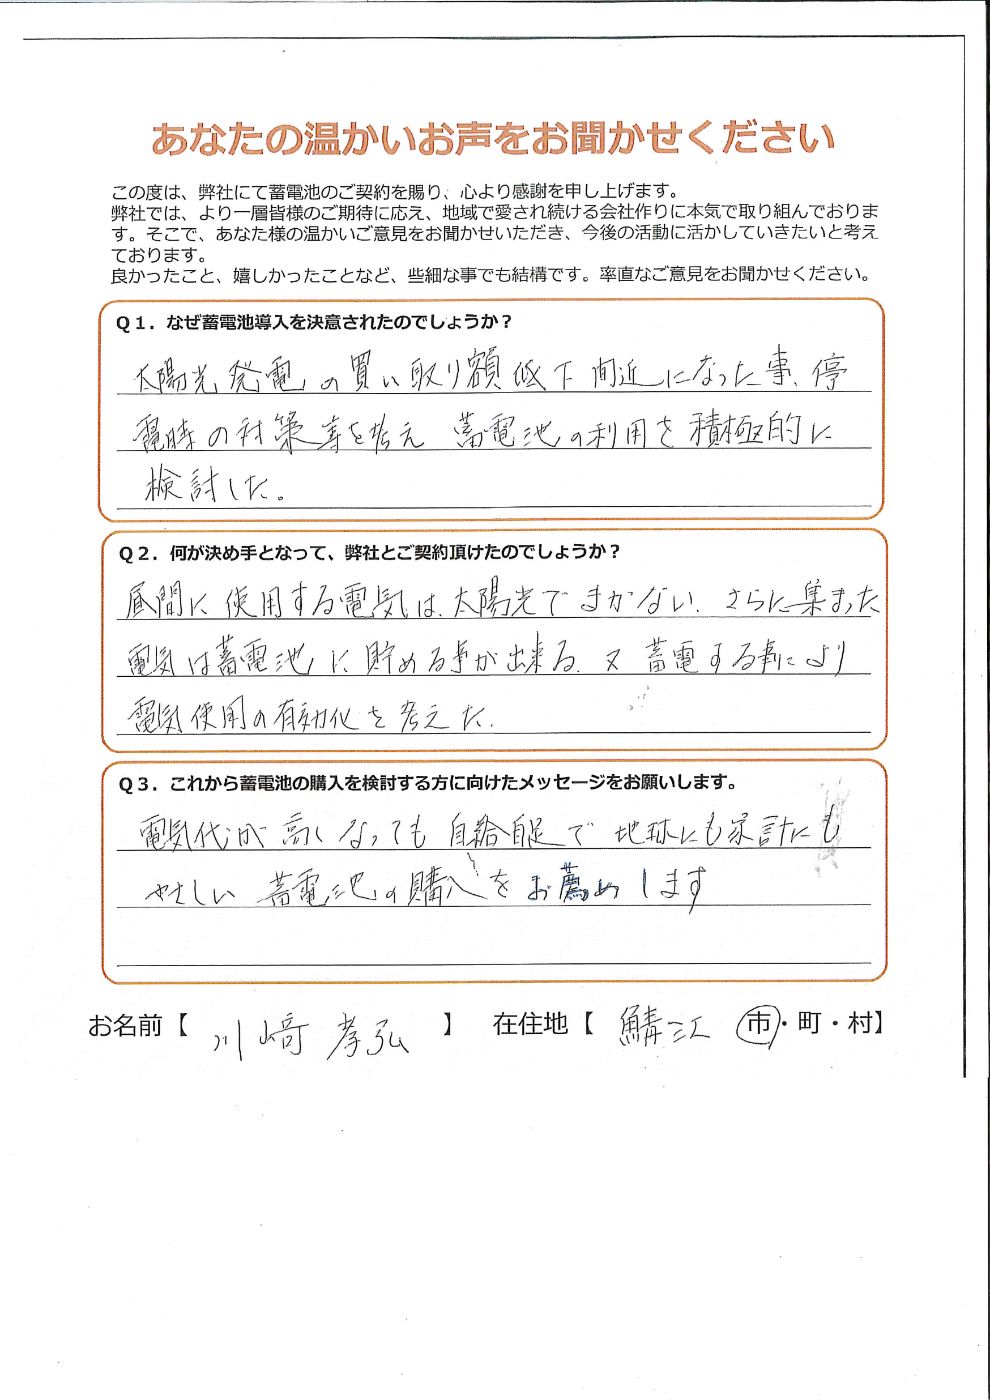 あなたの温かいお声をお聞かせください
この度は、弊社にて蓄電池のご契約を賜り、心より感謝を申し上げます。
弊社では、より一層皆様のご期待に応え、地域で愛され続ける会社作りに本気で取り組んでおりま
す。そこで、あなた様の温かいご意見をお聞かせいただき、今後の活動に活かしていきたいと考え
ております。
良かったこと、嬉しかったことなど、些細な事でも結構です。率直なご意見をお聞かせください。
Q1．なぜ蓄電池導入を決意されたのでしょうか？
太陽光発電の買い取り額低下間近になった事、停
電時の対策等を考え 蓄電池の利用を積極的に
検討した。
Q2．何が決め手となって、弊社とご契約頂けたのでしょうか？
昼間に使用する電気は、太陽光でまかない、さらに集まった
電気は蓄電池に貯める事が出来る。又蓄電する事により
電気使用の有効化を考えた。
Q3．これから蓄電池の購入を検討する方に向けたメッセージをお願いします。
電気代が高くなっても自給自足で地球にも家計にも
やさしい蓄電池の購入をお薦めします
お名前【 川﨑 孝弘 】 在住地【 鯖江 市・町・村】